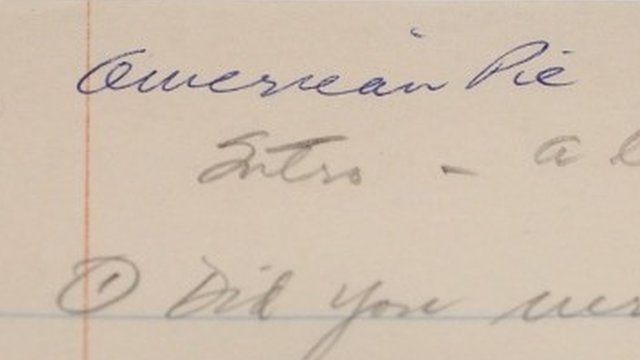 American Pie
Intro - a
① Did you